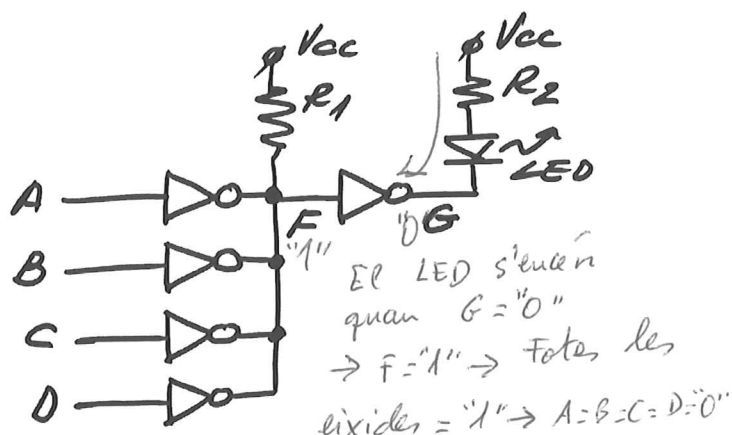 Vcc
Vcc
R1
R2
LED
A
F
"0"
G
"1"
B
C
D
El LED s'encén
quan G="0"
→ F="1" → Totes les
eixides = "1" → A=B=C=D="0"